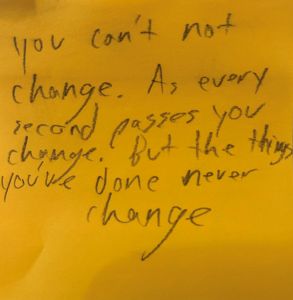 you can't not
change. As every
second passes you
change. But the things
you've done never
change